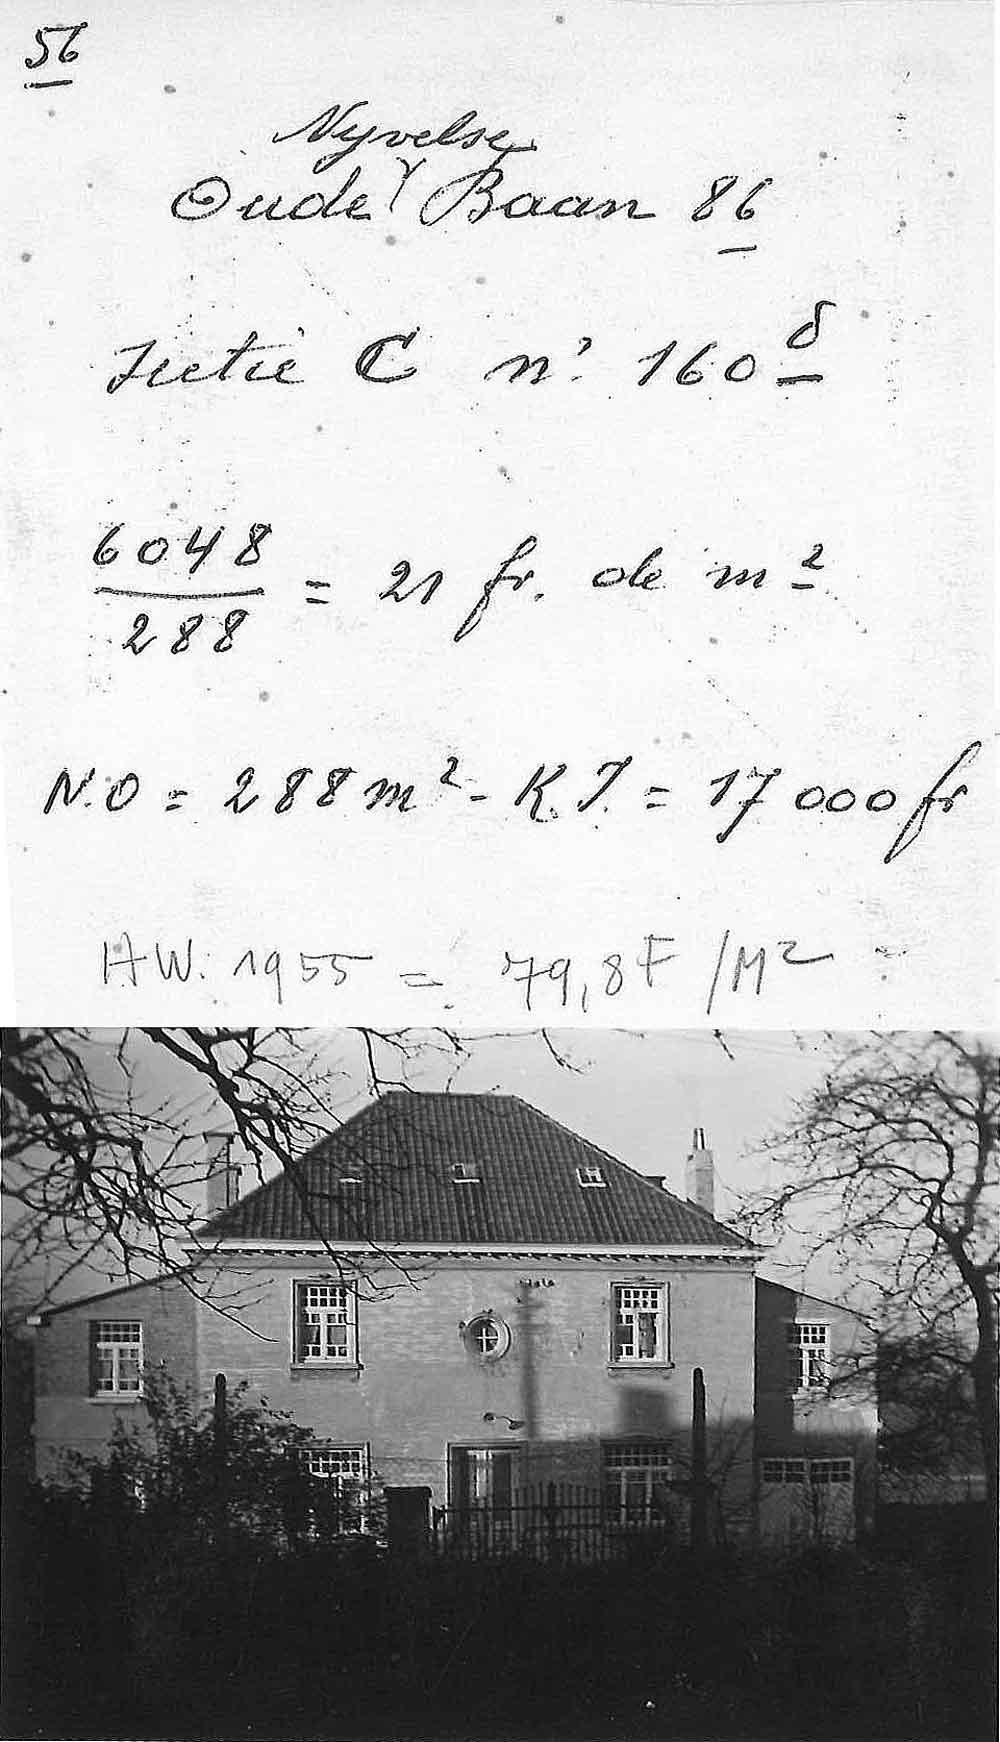 56
Nyvelse
Oude Baan 86
Sectie C n° 160 δ
6048
288
= 21 fr. de m²
N.O = 288 m² - K.I. = 17 000 fr
HW. 1955 = 79,8 F /M²